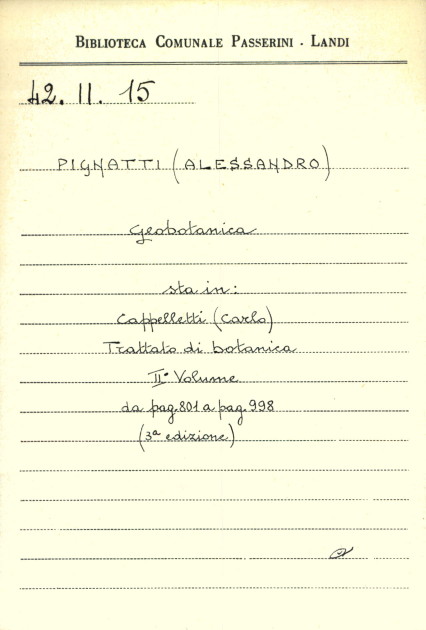 BIBLIOTECA COMUNALE PASSERINI - LANDI
42. II. 15
PIGNATTI (ALESSANDRO)
Geobotanica
sta in:
Cappelletti (Carlo)
Trattato di botanica
II° Volume
da pag. 801 a pag. 998
(3ª edizione)